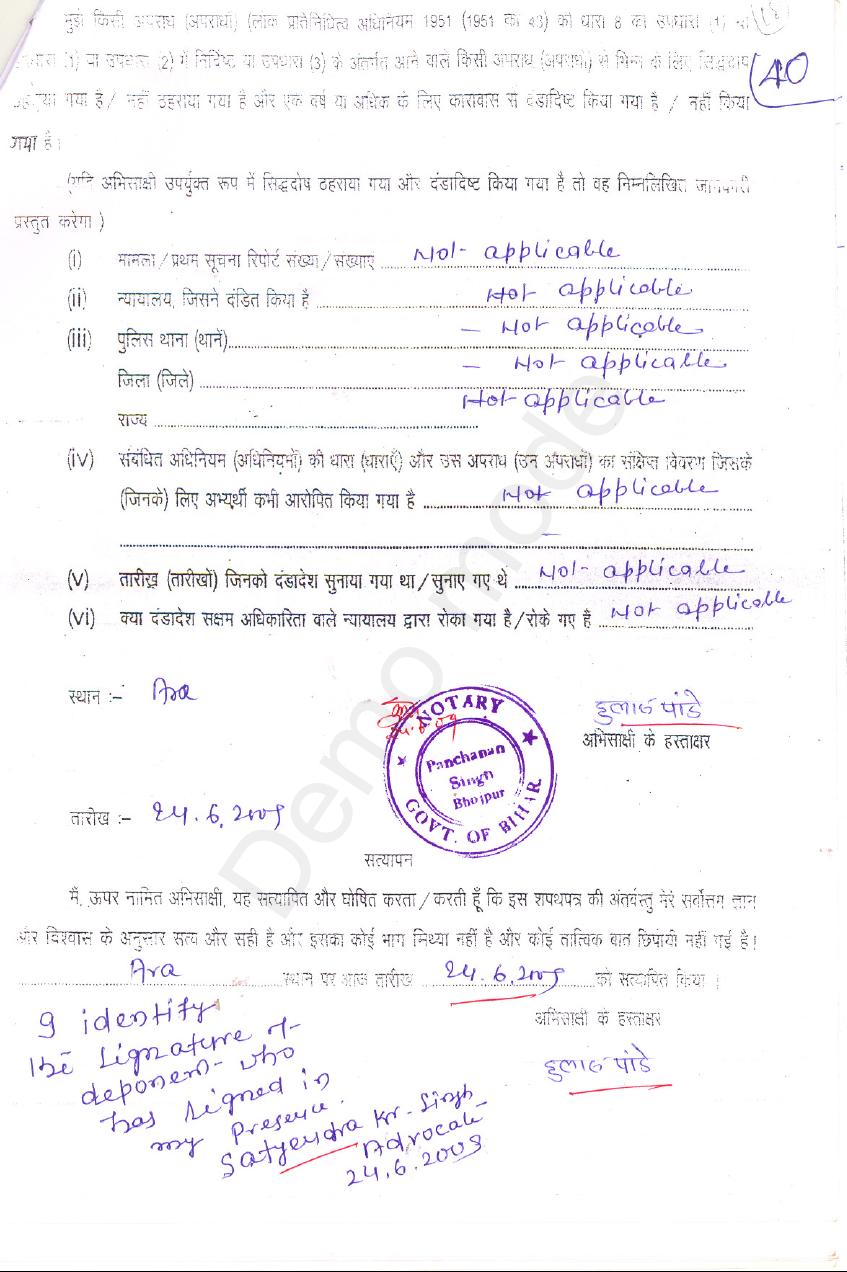 मुझे किसी अपराध (अपराधों) (लोक प्रतिनिधित्व अधिनियम 1951 (1951 का 43) की धारा 8 की उपधारा (1) या
40
(1) या उपधारा (2) में निर्दिष्ट या उपधारा (3) के अंतर्गत आने वाले किसी अपराध (अपराधों) से भिन्न के लिए सिद्धदोष
ठहराया गया है / नहीं ठहराया गया है और एक वर्ष या अधिक के लिए कारावास से दंडादिष्ट किया गया है / नहीं किया
गया है।
(यदि अभिसाक्षी उपर्युक्त रूप में सिद्धदोष ठहराया गया और दंडादिष्ट किया गया है तो वह निम्नलिखित जानकारी
प्रस्तुत करेगा )
(i) मामला / प्रथम सूचना रिपोर्ट संख्या / संख्याएं Not applicable
(ii) न्यायालय, जिसने दंडित किया है Not applicable
(iii) पुलिस थाना (थानें) – Not applicable
जिला (जिले) – Not applicable
राज्य Not applicable
(iv) संबंधित अधिनियम (अधिनियमों) की धारा (धाराएँ) और उस अपराध (उन अपराधों) का संक्षिप्त विवरण जिसके
(जिनके) लिए अभ्यर्थी कभी आरोपित किया गया है Not applicable
–
(v) तारीख (तारीखों) जिनको दंडादेश सुनाया गया था / सुनाए गए थे Not applicable
(vi) क्या दंडादेश सक्षम अधिकारिता वाले न्यायालय द्वारा रोका गया है / रोके गए हैं Not applicable
स्थान :– Ara
NOTARY
Panchanan
Singh
Bhojpur
GOVT. OF BIHAR
हुलास पांडे
अभिसाक्षी के हस्ताक्षर
तारीख :– 24.6.2009
सत्यापन
मैं, ऊपर नामित अभिसाक्षी, यह सत्यापित और घोषित करता / करती हूँ कि इस शपथपत्र की अंतर्वस्तु मेरे सर्वोत्तम ज्ञान
और विश्वास के अनुसार सत्य और सही है और इसका कोई भाग मिथ्या नहीं है और कोई तात्विक बात छिपायी नहीं गई है।
Ara स्थान पर आज तारीख 24.6.2009 को सत्यापित किया ।
अभिसाक्षी के हस्ताक्षर
हुलास पांडे
I identify
the signature of
deponent who
has signed in
my presence.
Satyendra Kr. Singh
Advocate
24.6.2009
Demo mode